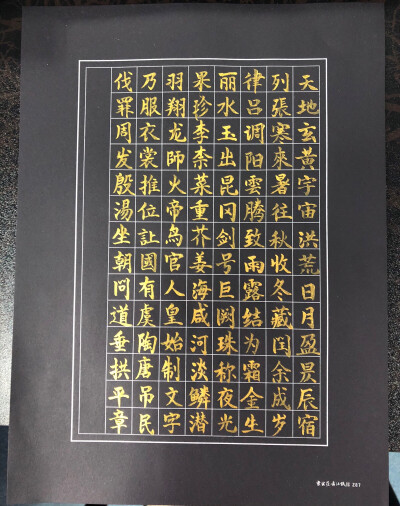 天地玄黃宇宙洪荒日月盈昃辰宿
列張寒來暑往秋收冬藏闰余成岁
律吕调阳雲腾致雨露结为霜金生
丽水玉出昆冈剑号巨阙珠称夜光
果珍李柰菜重芥姜海咸河淡鳞潜
羽翔龙師火帝鸟官人皇始制文字
乃服衣裳推位让國有虞陶唐吊民
伐罪周发殷湯坐朝问道垂拱平章